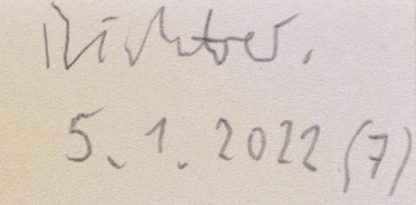 Richter.
5.1.2022 (7)